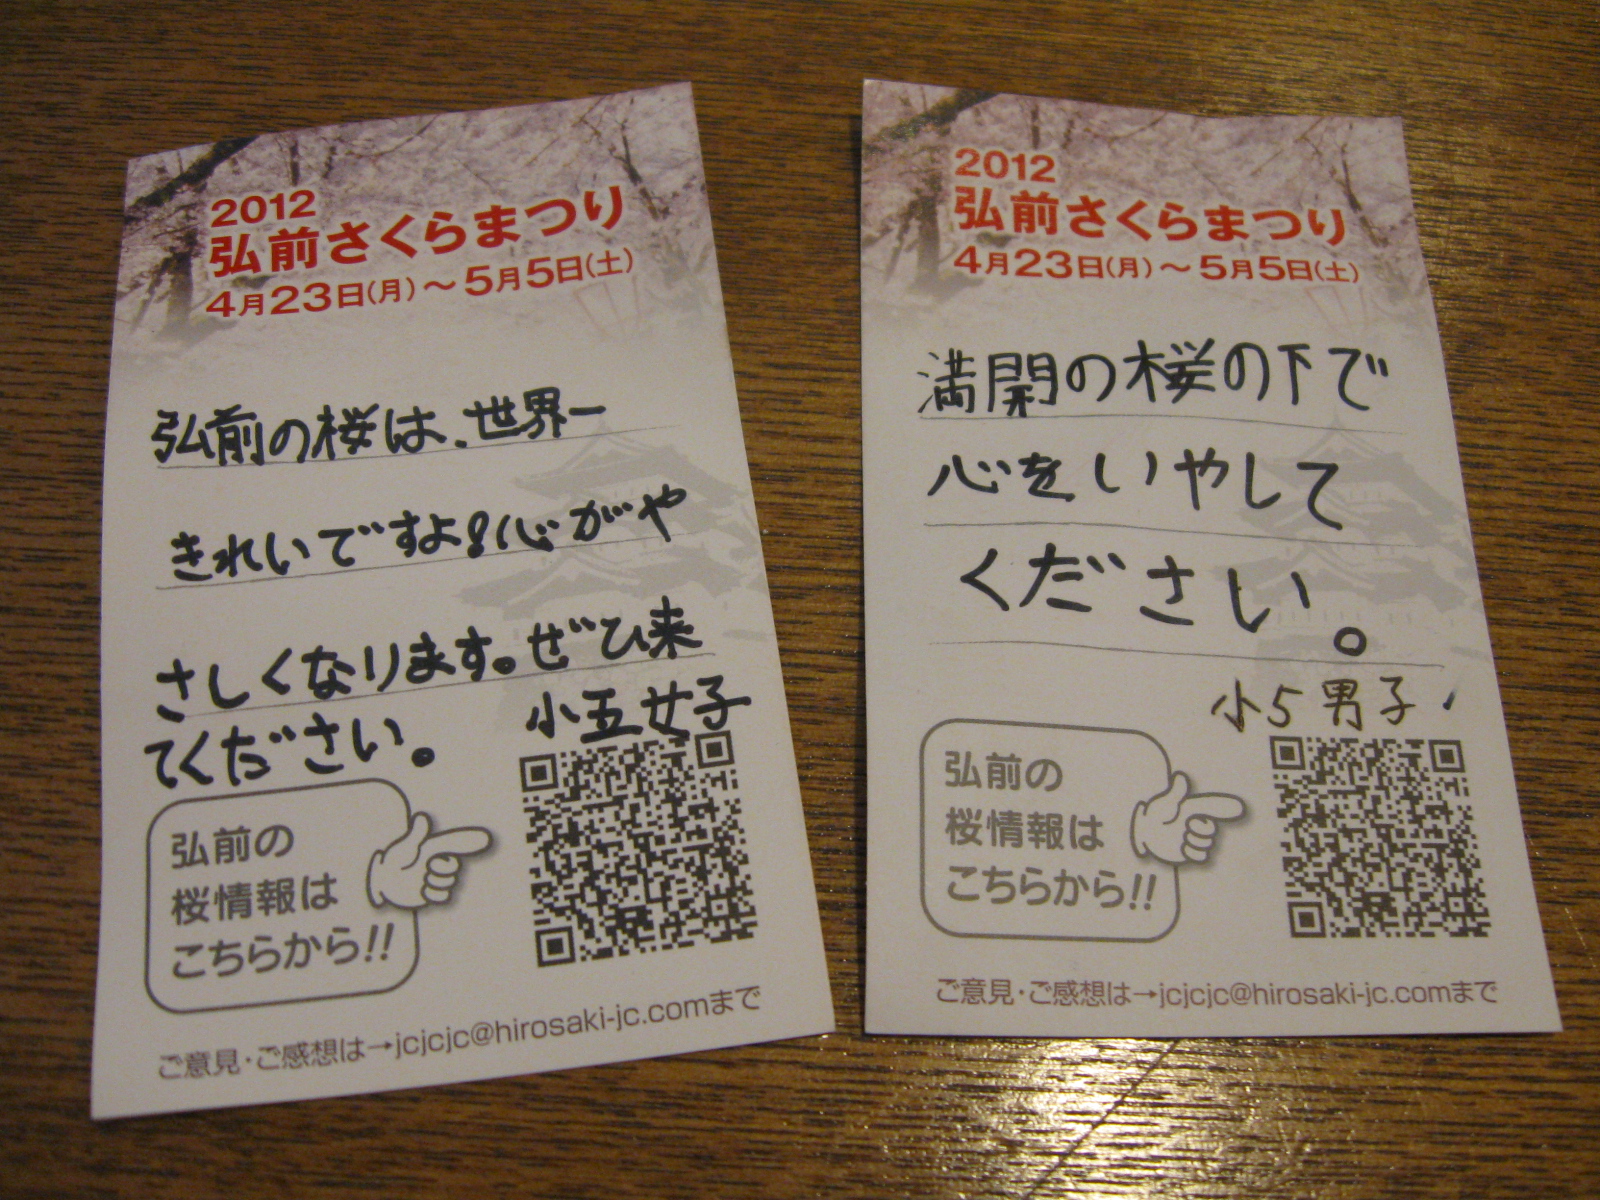 2012
弘前さくらまつり
4月23日(月)～5月5日(土)
弘前の桜は、世界一
きれいですよ!心がや
さしくなります。ぜひ来
てください。
小五女子
弘前の
桜情報は
こちらから!!
ご意見・ご感想は→jcjcjc@hirosaki-jc.comまで
2012
弘前さくらまつり
4月23日(月)～5月5日(土)
満開の桜の下で
心をいやして
ください。
小5男子
弘前の
桜情報は
こちらから!!
ご意見・ご感想は→jcjcjc@hirosaki-jc.comまで